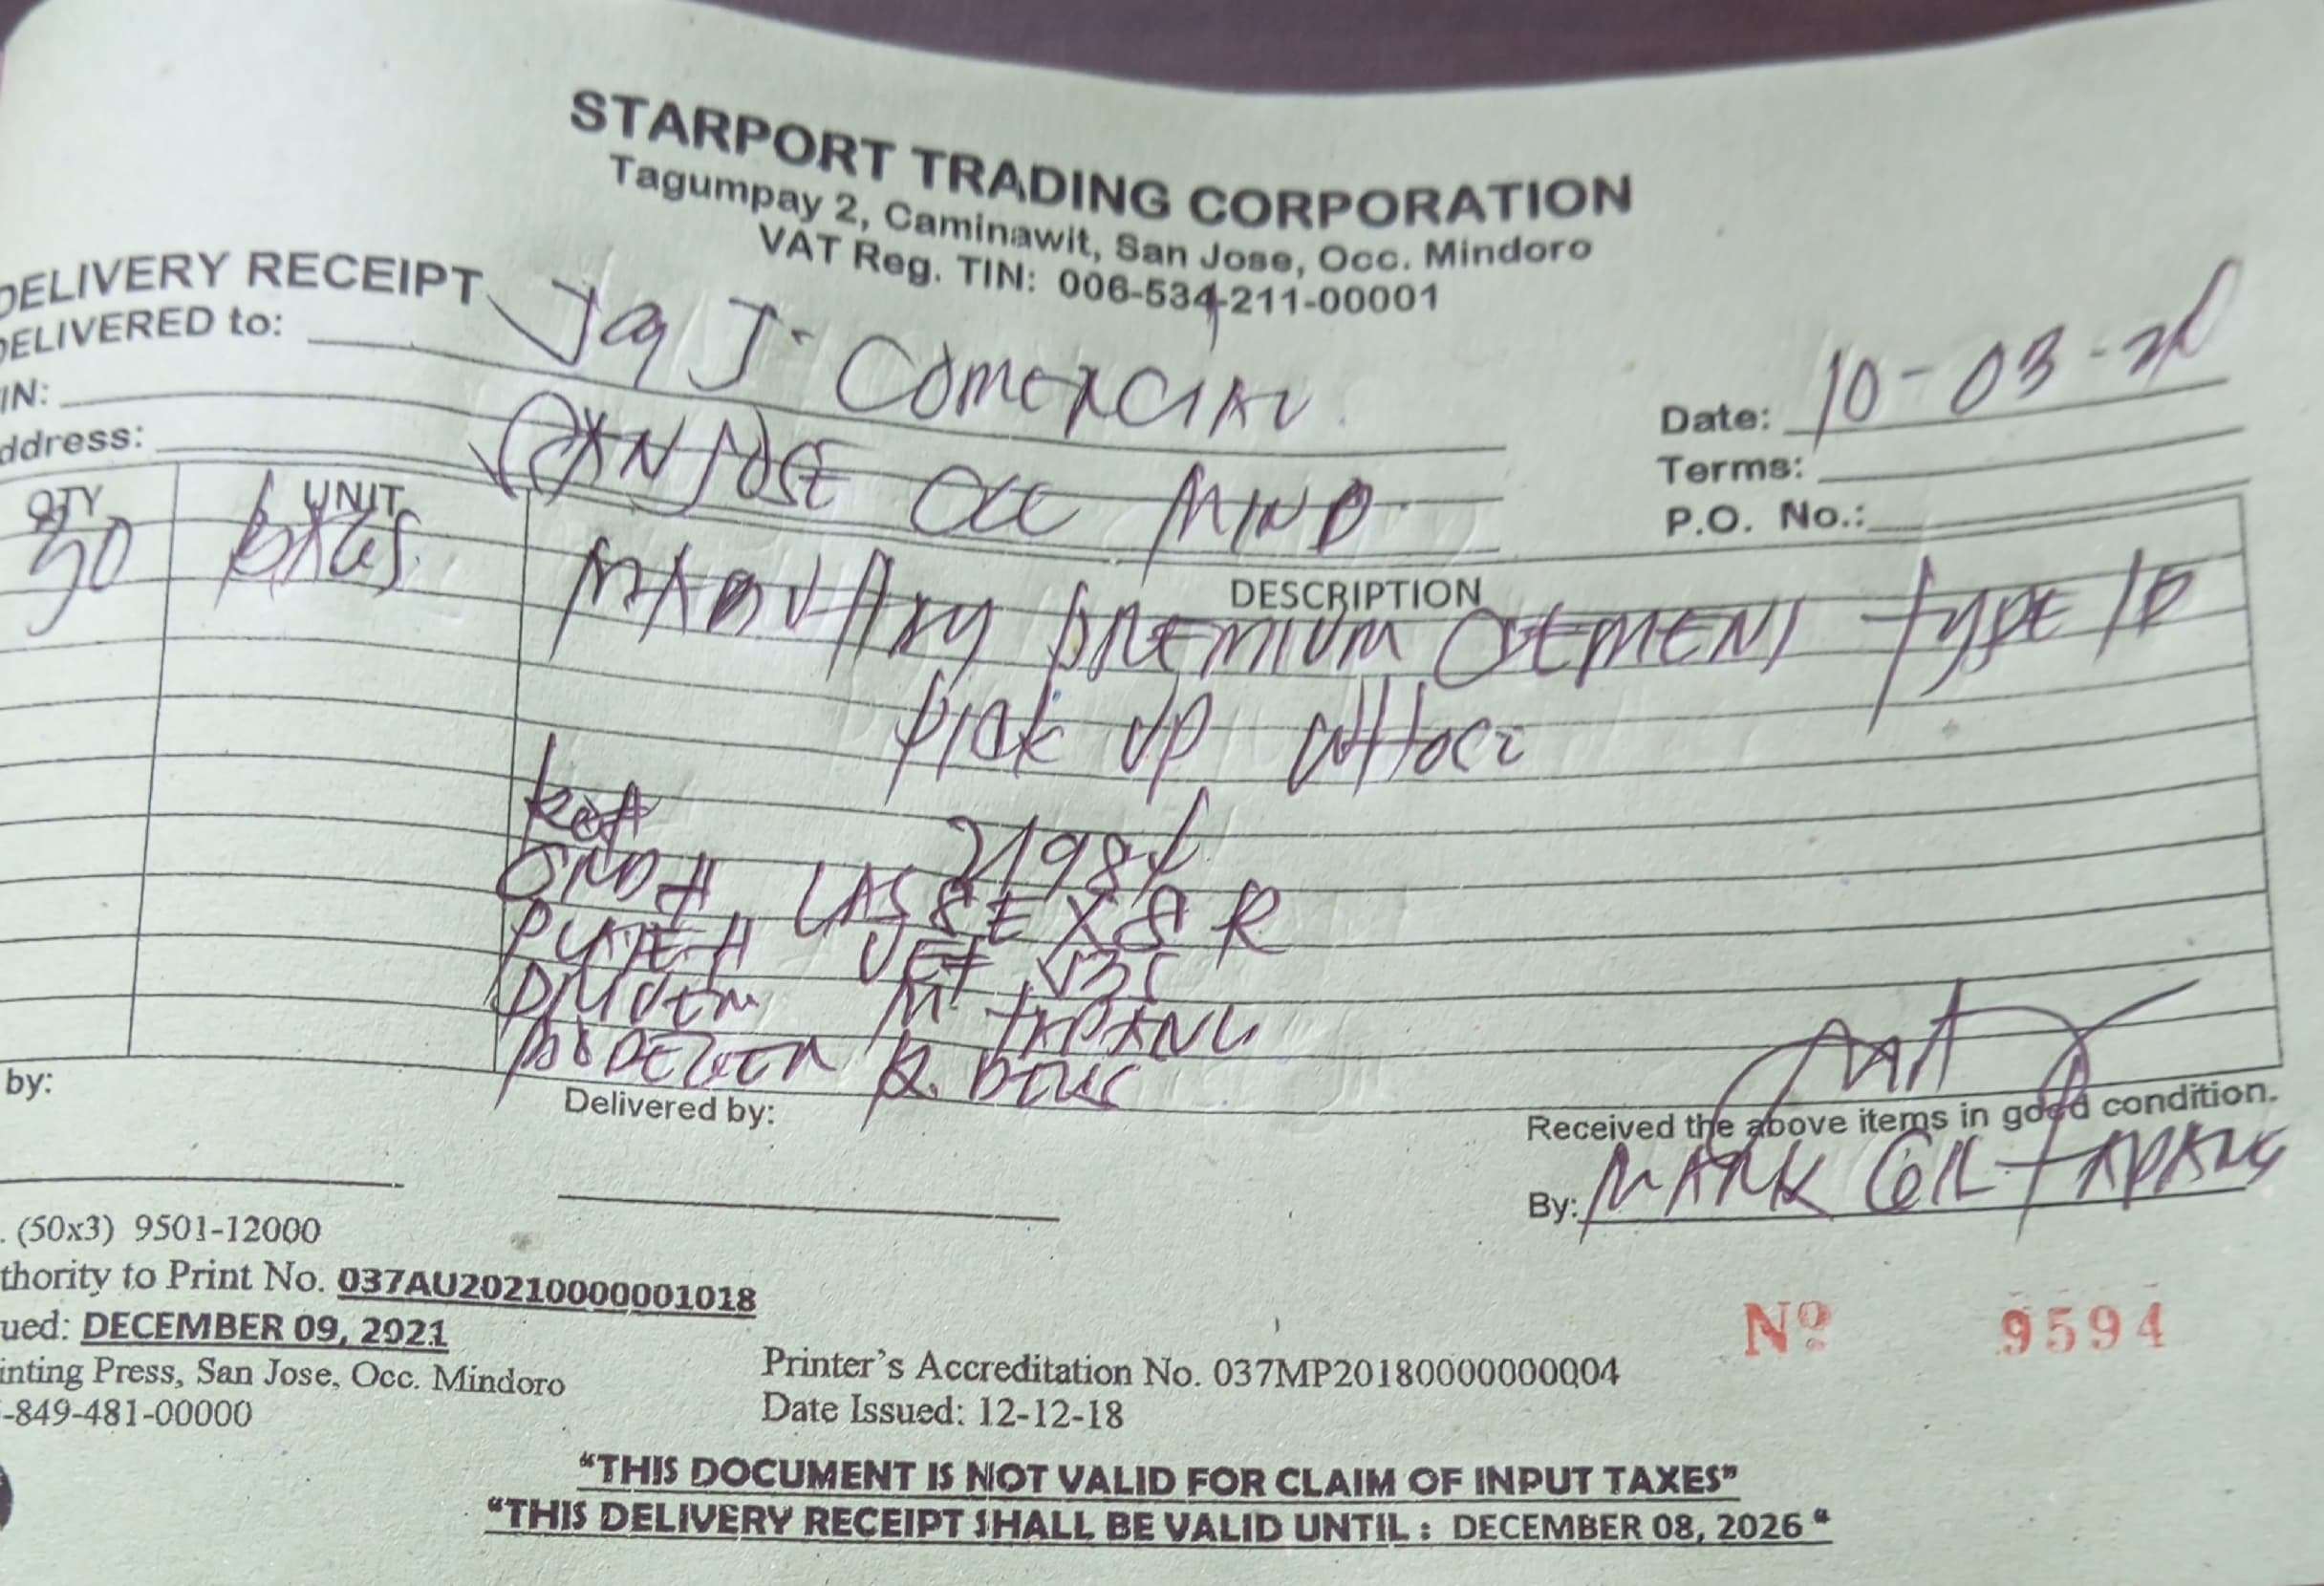 STARPORT TRADING CORPORATION
Tagumpay 2, Caminawit, San Jose, Occ. Mindoro
VAT Reg. TIN: 006-534-211-00001
DELIVERY RECEIPT
DELIVERED to: Jag J. COMERCIAL
Date: 10-03-
IN:
Terms:
ddress: SAN JOSE OCC MIND.
P.O. No.:
QTY UNIT DESCRIPTION
50 BAGS MABUHAY PREMIUM CEMENT TYPE 1P
PICK UP
2198
PLATE#
DRIVER M. TAPANG
R.
by:
Delivered by:
Received the above items in good condition.
By: MARK GIL TAPANG
. (50x3) 9501-12000
thority to Print No. 037AU20210000001018
ued: DECEMBER 09, 2021
inting Press, San Jose, Occ. Mindoro
-849-481-00000
Printer's Accreditation No. 037MP20180000000004
Date Issued: 12-12-18
Nº 9594
"THIS DOCUMENT IS NOT VALID FOR CLAIM OF INPUT TAXES"
"THIS DELIVERY RECEIPT SHALL BE VALID UNTIL : DECEMBER 08, 2026 "